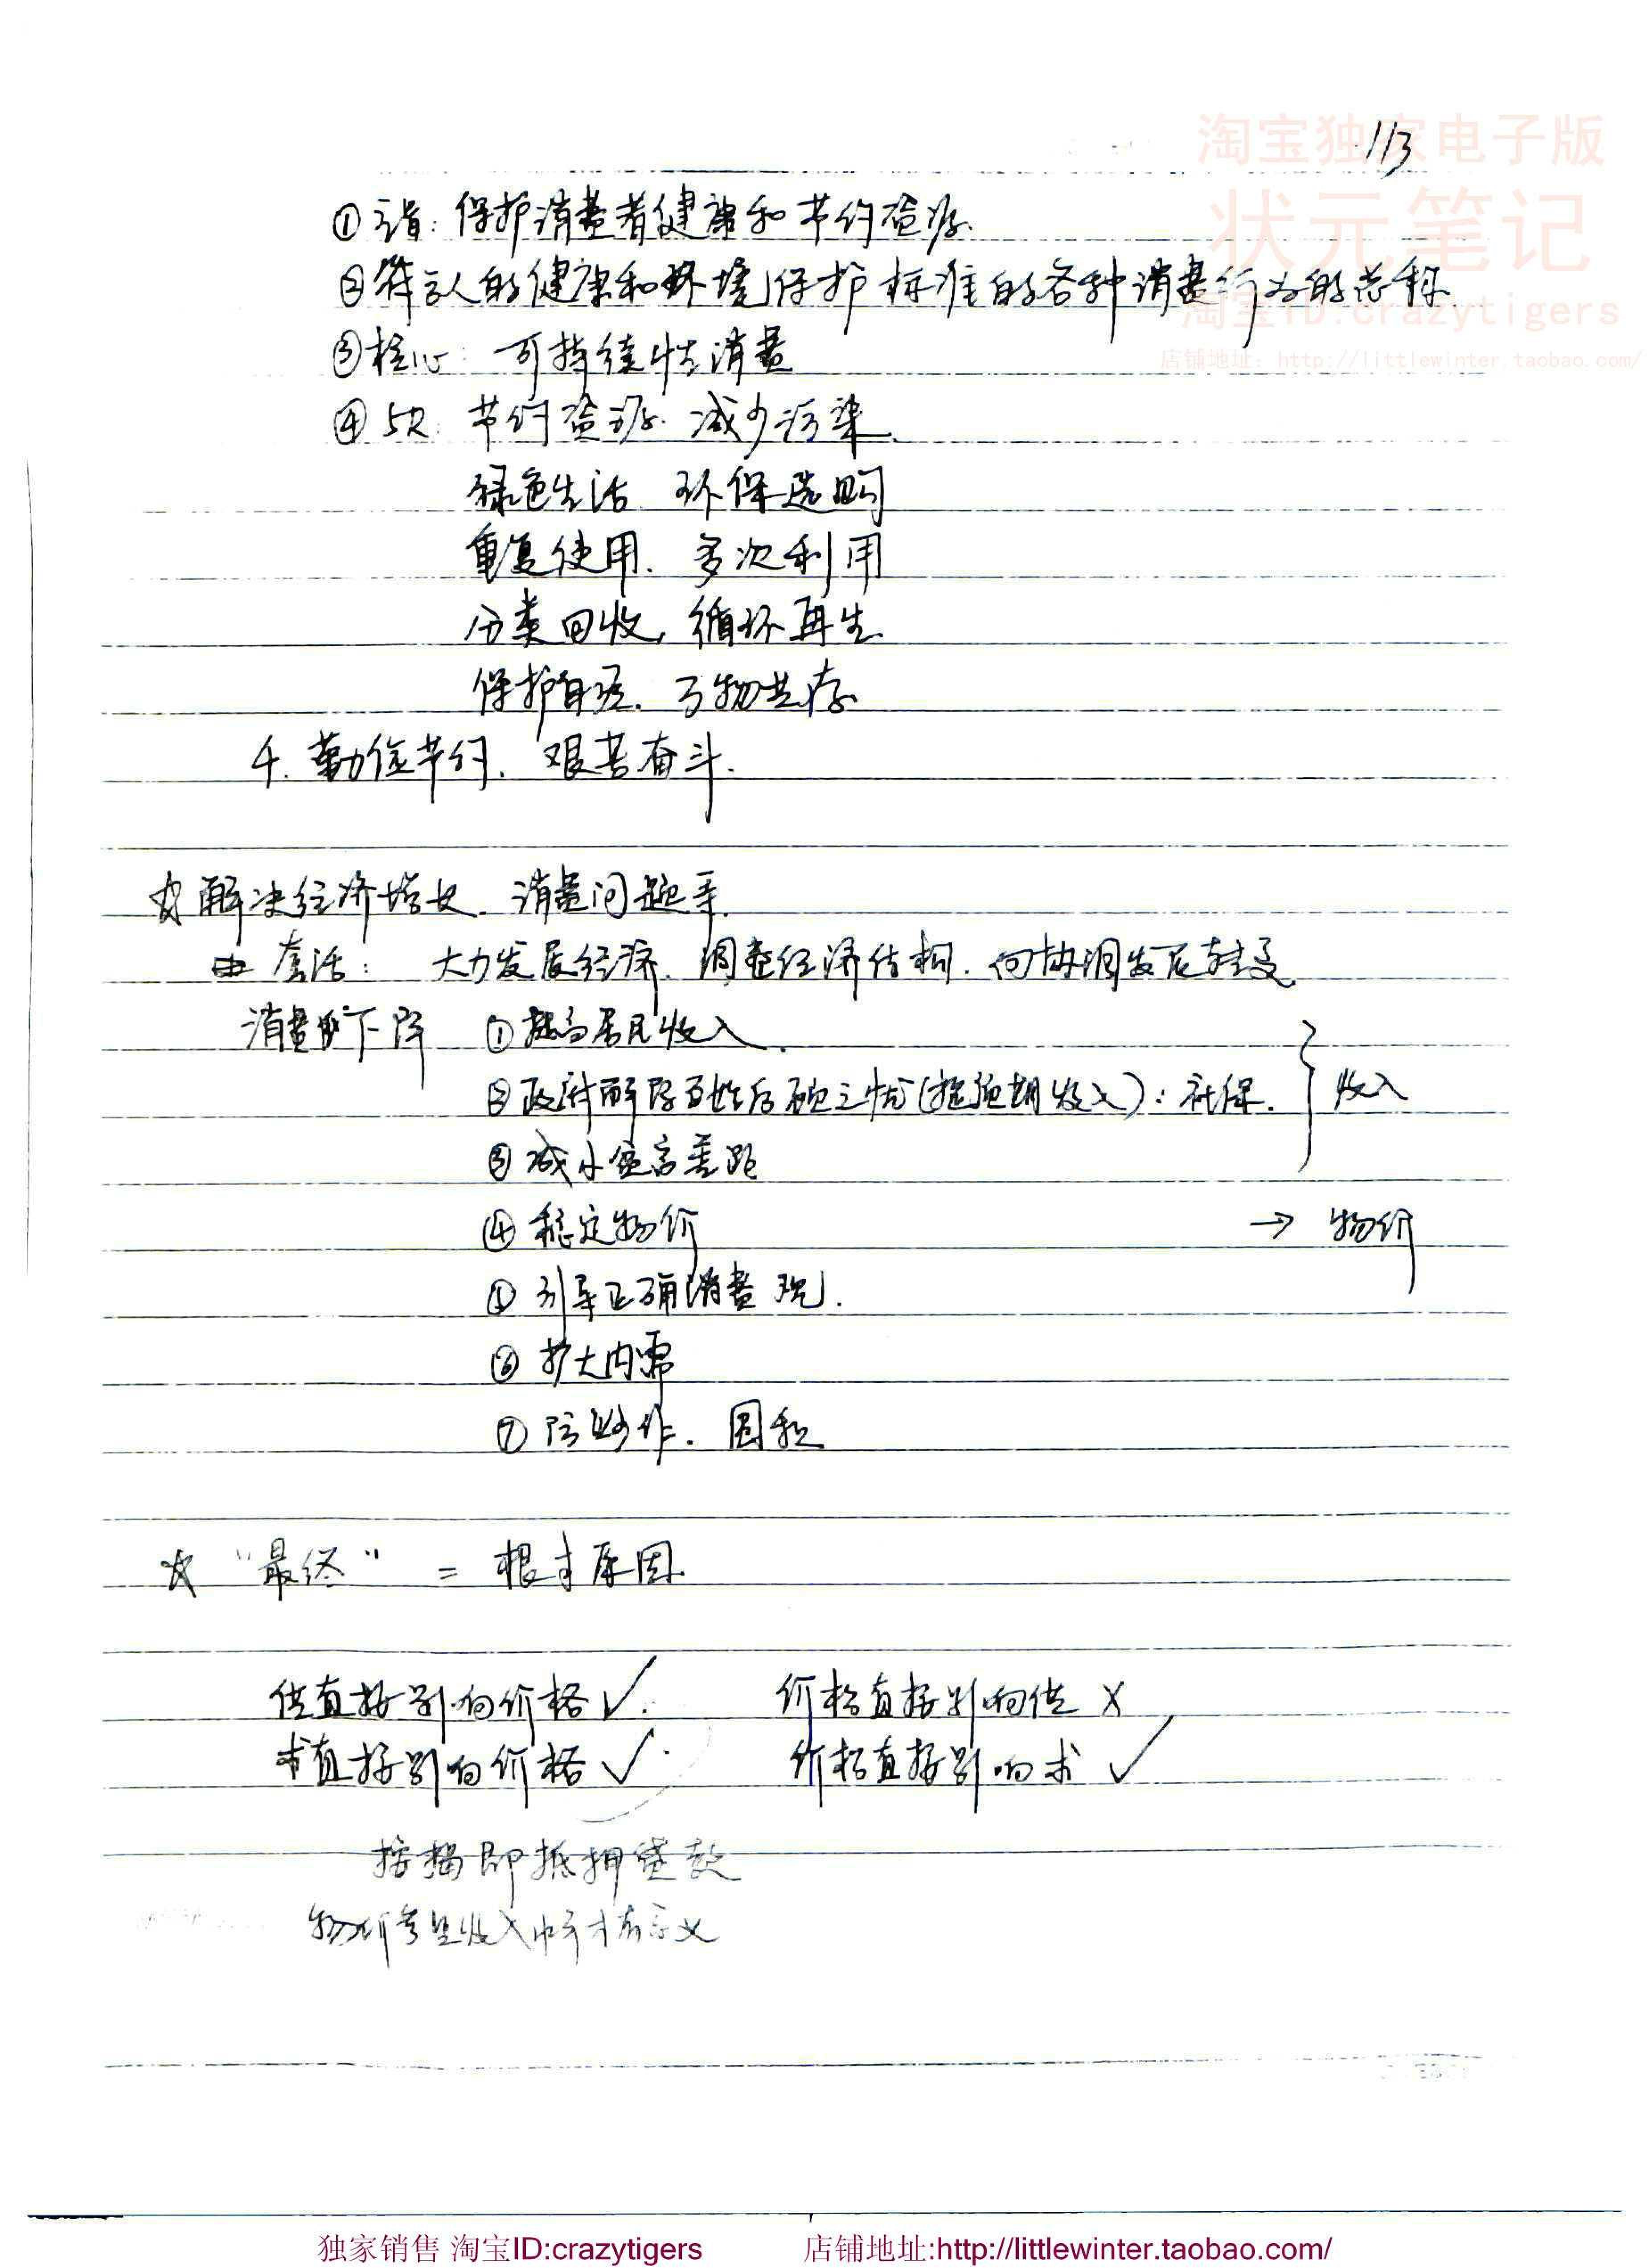 淘宝独家电子版
113
状元笔记
淘宝ID:crazytigers
店铺地址: http://littlewinter.taobao.com/
①主旨: 保护消费者健康和节约资源.
②符合人的健康和环境保护标准的各种消费行为的总称
③核心: 可持续性消费
④5R: 节约资源. 减少污染.
绿色生活 环保选购
重复使用. 多次利用
分类回收, 循环再生.
保护自然. 万物共存.
4. 勤俭节约, 艰苦奋斗.
☆解决经济增长. 消费问题等.
套活: 大力发展经济. 调整经济结构. 向协调发展转变.
消费下降 ①提高居民收入.
②政府解除百姓后顾之忧(提预期收入): 社保. } 收入
③减小贫富差距
④稳定物价 → 物价
⑤引导正确消费观.
⑥扩大内需
⑦防炒作. 囤积
☆ "最终" = 根本原因.
供直接影响价格✓. 价格直接影响供 ×
求直接影响价格✓. 价格直接影响求 ✓
按揭即抵押贷款
物价考虑收入水平才有意义
独家销售 淘宝ID:crazytigers 店铺地址:http://littlewinter.taobao.com/